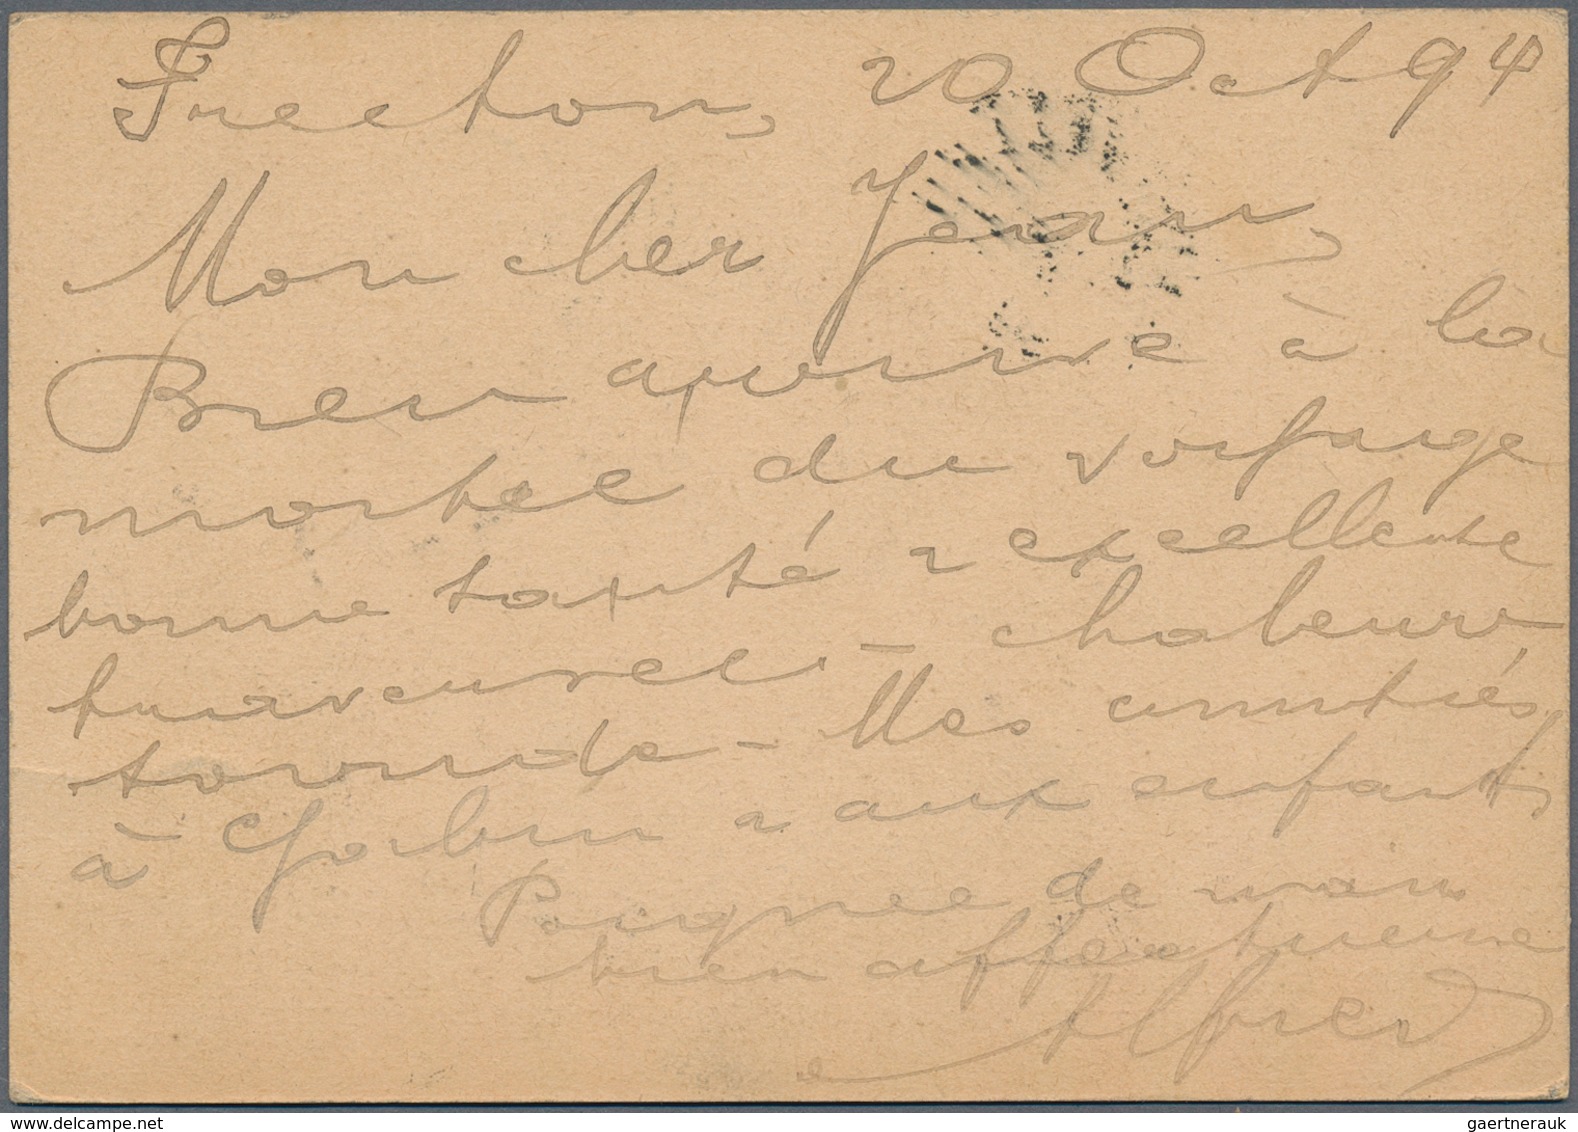 Freeton, 20 Oct 94
Mon cher Jean,
Bien arrivé à la
moitié du voyage
bonne santé & excellente
traversée. - chaleurs
torride - Mes amitiés
à & aux enfants,
Poignée de main
bien affectueuse
Alfred
gaertnerauk